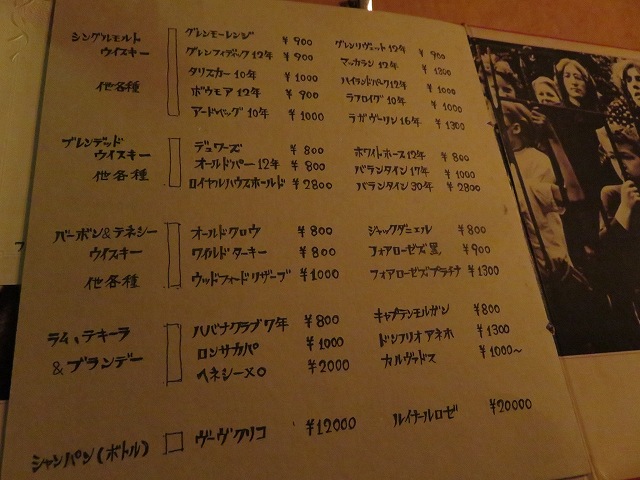 シングルモルト
ウイスキー
他各種
グレンモーレンジ ¥900
グレンフィディック12年 ¥900
タリスカー10年 ¥1000
ボウモア12年 ¥900
アードベッグ10年 ¥1000
グレンリヴェット12年 ¥900
マッカラン12年 ¥1300
ハイランドパーク12年 ¥1000
ラフロイグ10年 ¥1000
ラガヴーリン16年 ¥1300
ブレンデッド
ウイスキー
他各種
デュワーズ ¥800
オールドパー12年 ¥800
ロイヤルハウスホールド ¥2800
ホワイトホース12年 ¥800
バランタイン17年 ¥1000
バランタイン30年 ¥2800
バーボン&テネシー
ウイスキー
他各種
オールドクロウ ¥800
ワイルドターキー ¥800
ウッドフォードリザーブ ¥1000
ジャックダニエル ¥800
フォアローゼズ黒 ¥900
フォアローゼズプラチナ ¥1300
ラム、テキーラ
&ブランデー
ハバナクラブ7年 ¥800
ロンサカパ ¥1000
ヘネシーXO ¥2000
キャプテンモルガン ¥800
ドンフリオアネホ ¥1300
カルヴァドス ¥1000〜
シャンパン(ボトル)
ヴーヴクリコ ¥12000
ルイナールロゼ ¥20000